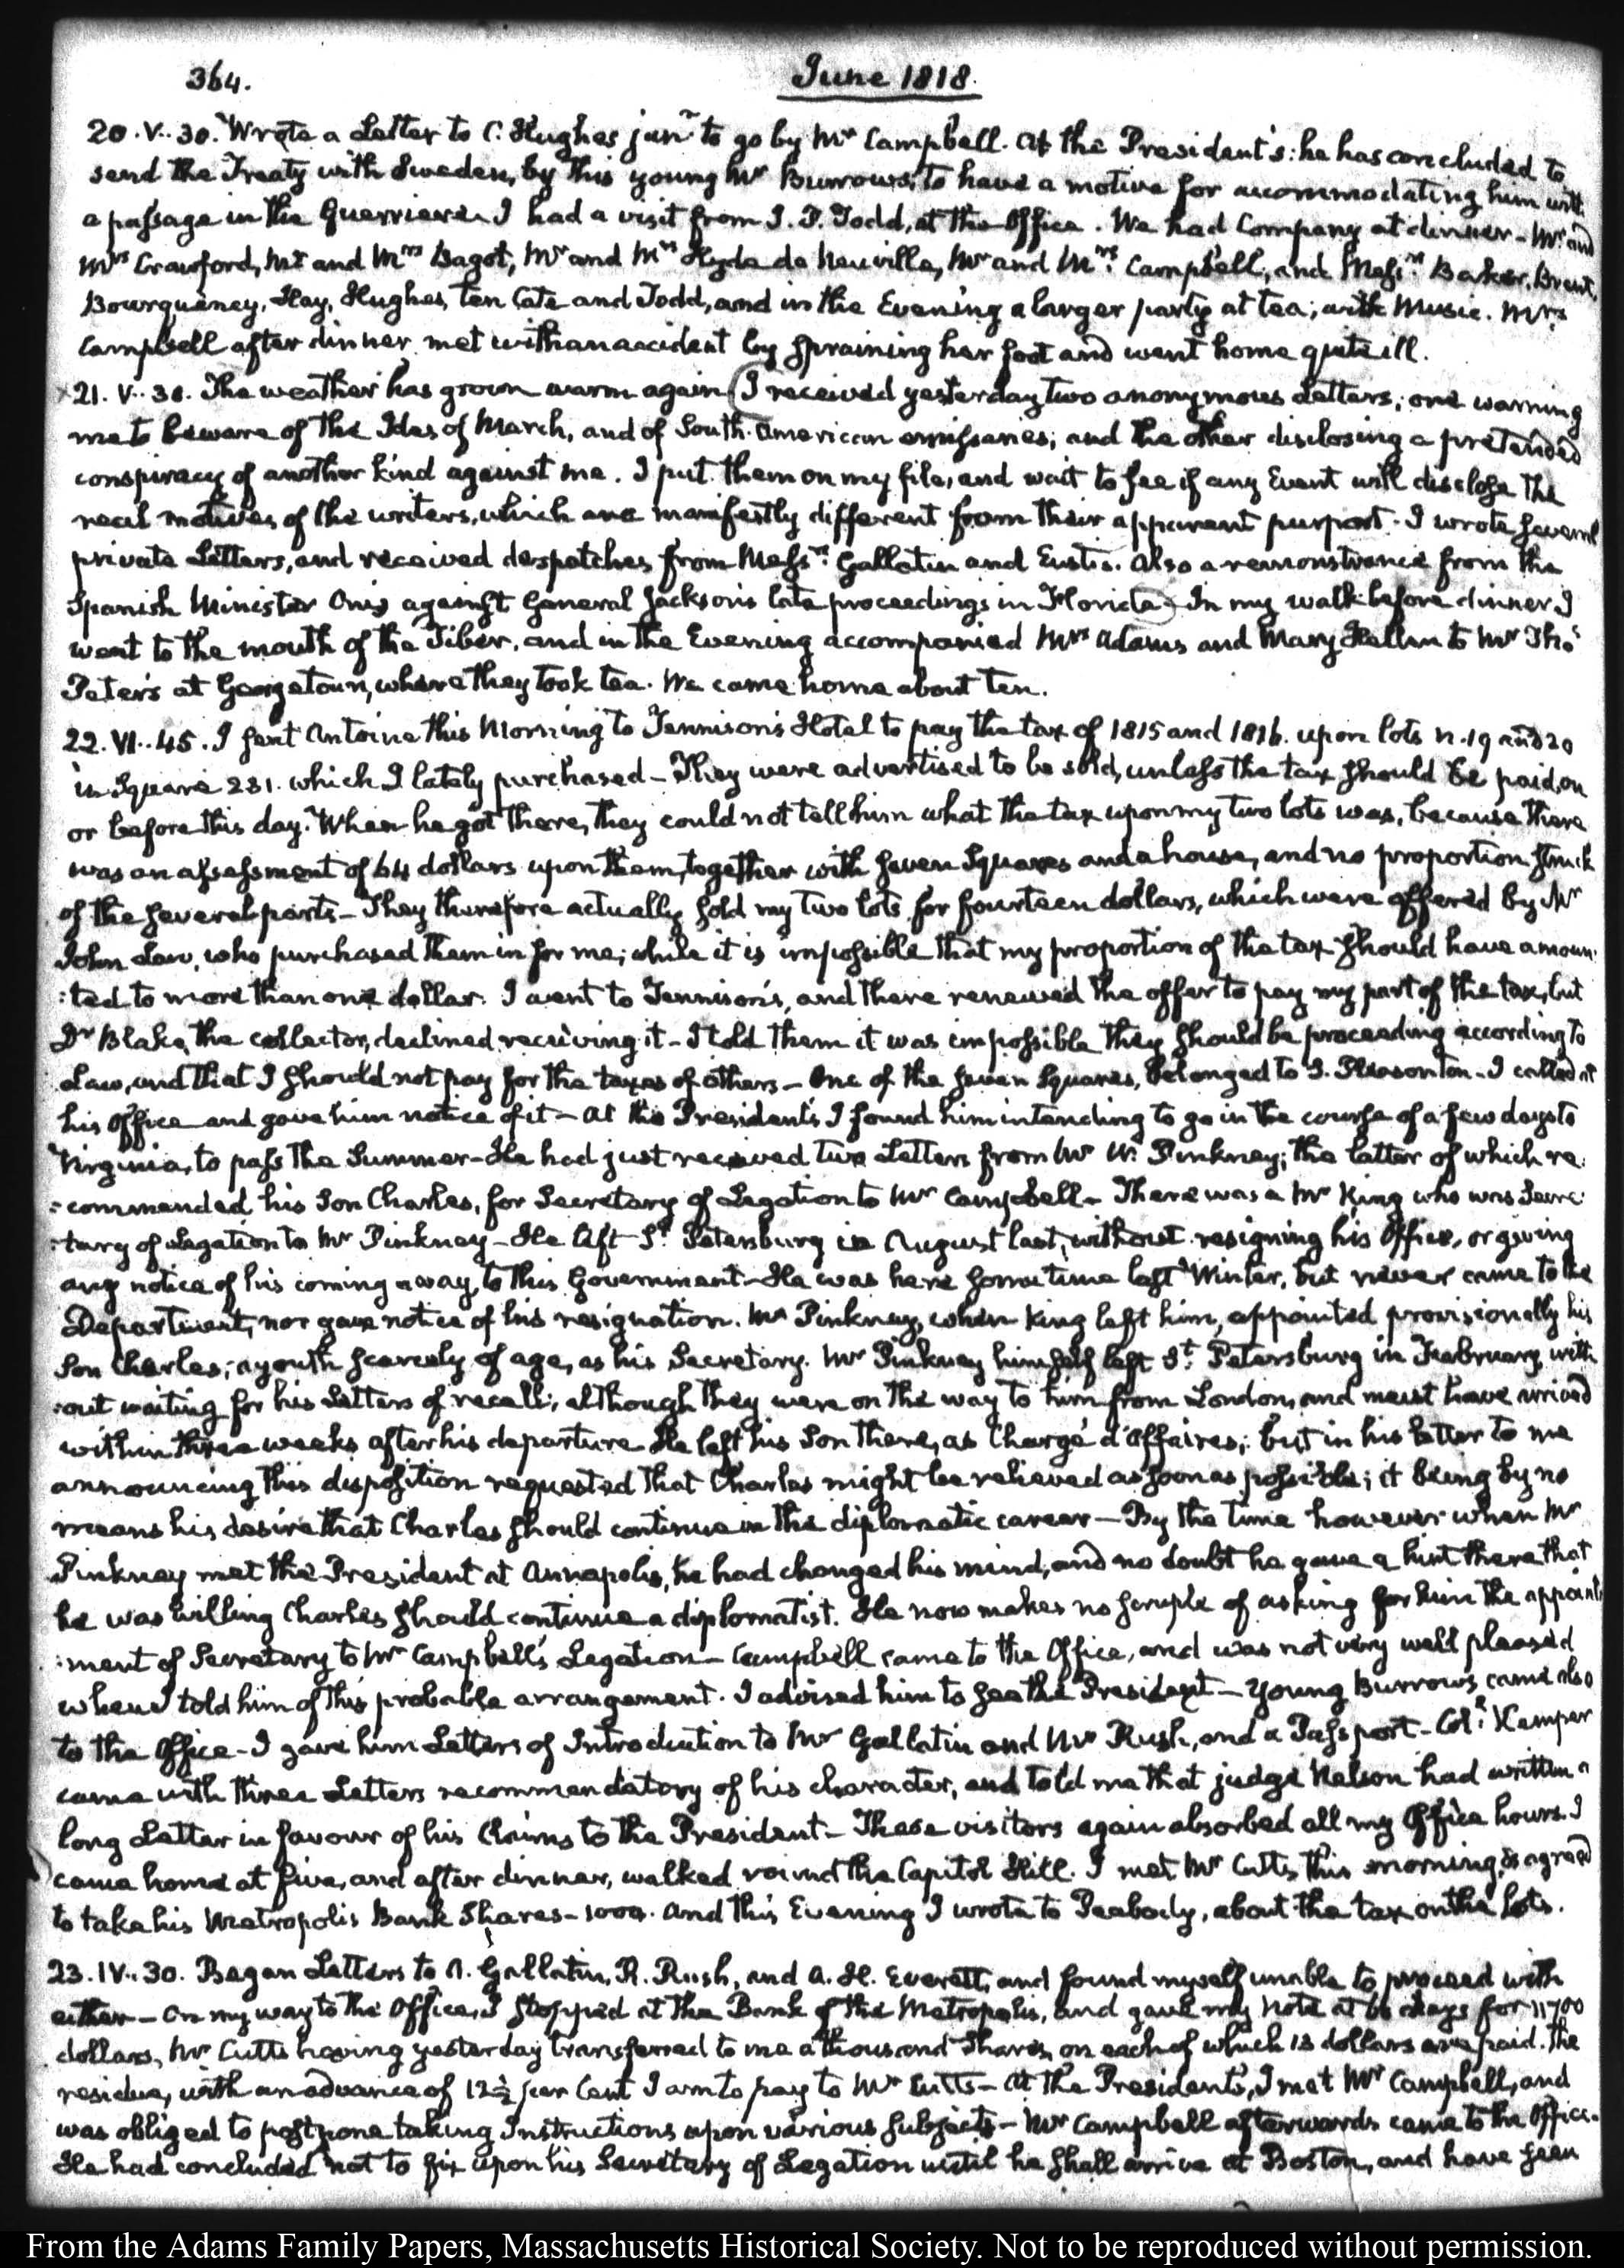 364.
June 1818.
20. V..30. Wrote a Letter to C. Hughes junr. to go by Mr Campbell. At the President's: he has concluded to
send the Treaty with Sweden, by this young Mr Burrows, to have a motive for accommodating him with
a passage in the Guerriere. I had a visit from J. P. Todd, at the Office. We had Company at dinner—Mr and
Mrs Crawford, Mr and Mrs Bagot, Mr and Mrs Hyde de Neuville, Mr and Mrs. Campbell, and Messrs Baker, Brent,
Bourquèney, Hay, Hughes, ten Cate and Todd, and in the Evening a larger party at tea; with Music. Mrs.
Campbell after dinner met with an accident by spraining her foot and went home quite ill.
21. V..30. The weather has grown warm again (I received yesterday two anonymous Letters; one warning
me to beware of the Ides of March, and of South-American emissaries; and the other disclosing a pretended
conspiracy of another kind against me. I put them on my file, and wait to see if any Event will disclose the
real motives of the writers, which are manifestly different from their apparent purport. I wrote several
private Letters, and received despatches from Messrs. Gallatin and Eustis. Also a remonstrance from the
Spanish Minister Onis against General Jackson's late proceedings in Florida) In my walk before dinner I
went to the mouth of the Tiber, and in the Evening accompanied Mrs Adams and Mary Hellen to Mr Thos
Peter's at Georgetown, where they took tea. We came home about ten.
22. VI..45. I sent Antoine this Morning to Tennison's Hotel to pay the tax of 1815 and 1816. upon lots n. 19 and 20
in Square 231. which I lately purchased—They were advertised to be sold, unless the tax should be paid, on
or before this day. When he got there, they could not tell him what the tax upon my two lots was, because there
was an assessment of 64 dollars upon them, together with seven Squares and a house, and no proportion struck
of the several parts—They therefore actually sold my two lots for fourteen dollars, which were offered by Mr
John Law, who purchased them in for me; while it is impossible that my proportion of the tax should have amoun:
:ted to more than one dollar. I went to Tennison's, and there renewed the offer to pay my part of the tax, but
Dr Blake, the collector, declined receiving it—I told them it was impossible they should be proceeding according to
Law, and that I should not pay for the taxes of others—One of the seven Squares, belonged to S. Pleasonton—I called at
his Office and gave him notice of it—At the President's I found him intending to go in the course of a few days to
Virginia, to pass the Summer—He had just received two Letters from Mr W. Pinkney; the latter of which re:
:commended his Son Charles, for Secretary of Legation to Mr Campbell—There was a Mr King who was Secre:
:tary of Legation to Mr Pinkney—He left St. Petersburg in August last, without resigning his Office, or giving
any notice of his coming away, to this Government—He was here some time last Winter, but never came to the
Department, nor gave notice of his resignation. Mr Pinkney, when King left him, appointed provisionally his
Son Charles; a youth scarcely of age, as his Secretary. Mr Pinkney himself left St. Petersburg in February with:
:out waiting for his Letters of recall; although they were on the way to him from London, and must have arrived
within three weeks after his departure He left his Son there, as Chargé d'Affaires; but in his Letter to me
announcing this disposition requested that Charles might be relieved as soon as possible; it being by no
means his desire that Charles should continue in the diplomatic career—By the time however when Mr
Pinkney met the President at Annapolis, he had changed his mind, and no doubt he gave a hint there that
he was willing Charles should continue a diplomatist. He now makes no scruple of asking for him the appoint:
:ment of Secretary to Mr Campbell's Legation—Campbell came to the Office, and was not very well pleased
when I told him of this probable arrangement. I advised him to see the President—Young Burrows came also
to the Office—I gave him Letters of Introduction to Mr Gallatin and Mr Rush, and a Passport—Coll. Kemper
came with three Letters recommendatory of his character, and told me that judge Nelson had written a
long Letter in favour of his Claims to the President—These visitors again absorbed all my Office hours. I
came home at five, and after dinner, walked round the Capitol Hill. I met Mr Cutts this morning, & agreed
to take his Metropolis Bank Shares—1000. And this Evening I wrote to Peabody, about the tax on the lots.
23. IV..30. Began Letters to A. Gallatin, R. Rush, and A. H. Everett, and found myself unable to proceed with
either—On my way to the Office, I stopped at the Bank of the Metropolis, and gave my Note at 60 days for 11700
dollars, Mr Cutts having yesterday transferred to me a thousand Shares, on each of which 13 dollars are paid. The
residue, with an advance of 12½ per Cent I am to pay to Mr Cutts—At the President's, I met Mr Campbell, and
was obliged to postpone taking Instructions upon various subjects—Mr Campbell afterwards came to the Office.
He had concluded not to fix upon his Secretary of Legation until he shall arrive at Boston, and have seen
From the Adams Family Papers, Massachusetts Historical Society. Not to be reproduced without permission.